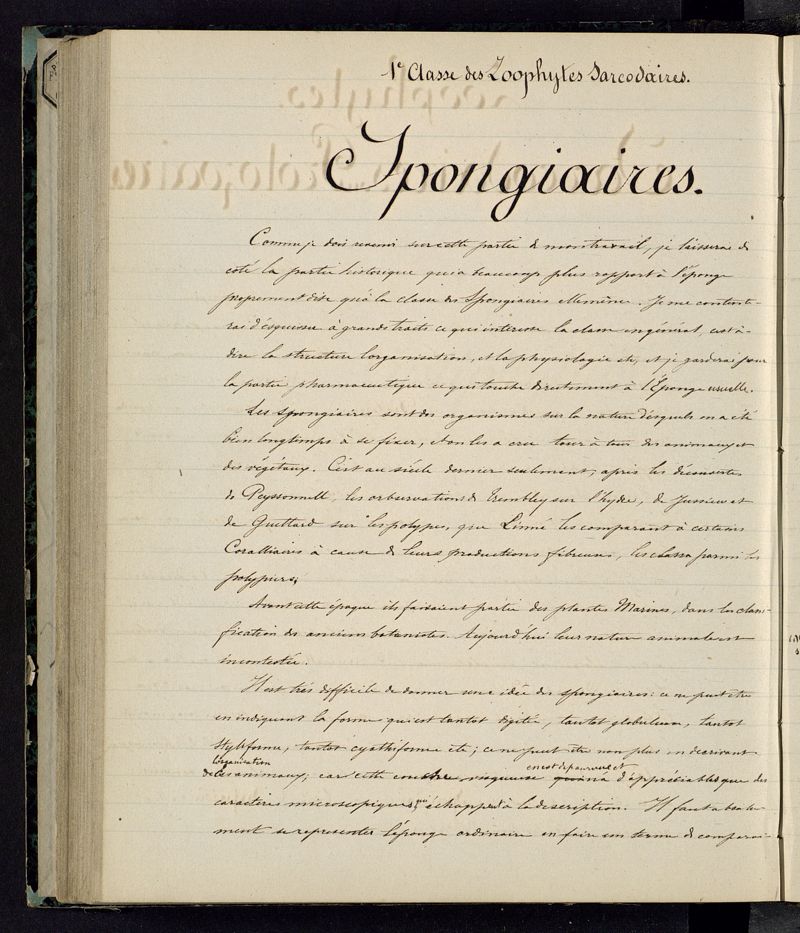 1e Classe des Zoophytes Sarcodaires.
Spongiaires.
Comme je dois revenir sur cette partie de mon travail, je laisserai de
coté la partie historique qui a beaucoup plus rapport à l'éponge
proprement dite qu'à la classe des Spongiaires elle même. Je me content-
rai d'esquisser à grands traits ce qui interesse la classe en général, c'est à
dire la structure l'organisation, et la physiologie etc, et je garderai pour
la partie pharmaceutique ce qui touche directement à l'Éponge usuelle.
Les Spongiaires sont des organismes sur la nature desquels on a été
bien longtemps à se fixer, et on les a cru tour à tour des animaux et
des végétaux. C'est au siècle dernier seulement, après les découvertes
de Peyssonnell, les observations de Trembley sur l'hydre, de Jussieu et
de Guettard sur les polypes, que Linné les comparant à certains
Coralliaires à cause de leurs productions fibreuses, les classa parmi les
polypiers.
Avant cette époque ils faisaient partie des plantes Marines, dans la classi-
fication des anciens botanistes. Aujourd'hui leur nature animale est
incontestée.
Il est très difficile de donner une idée des spongiaires: ce ne peut être
en indiquant la forme qui est tantot digitée, tantot globuleuse, tantot
styliforme, tantot cyathiforme etc; ce ne peut être non plus en décrivant
l'organisation
en est dépourvue et
de ces animaux; car cette d'appréciables que des
caractères microscopiques, qui échappent à la description. Il faut absolu-
ment se représenter l'éponge ordinaire en faire un terme de comparai-